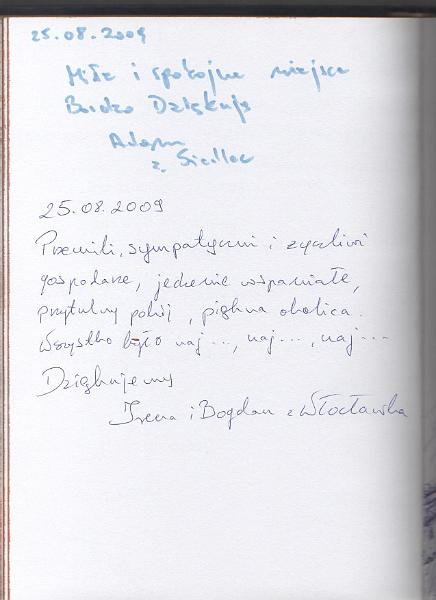 25.08.2009
Miłe i spokojne miejsce
Bardzo Dziękuję
Adam
z Siedlec
25.08.2009
Przemili, sympatyczni i życzliwi
gospodarze, jedzenie wspaniałe,
przytulny pokój, piękna okolica.
Wszystko było naj..., naj..., naj...
Dziękujemy
Irena i Bogdan z Włocławka